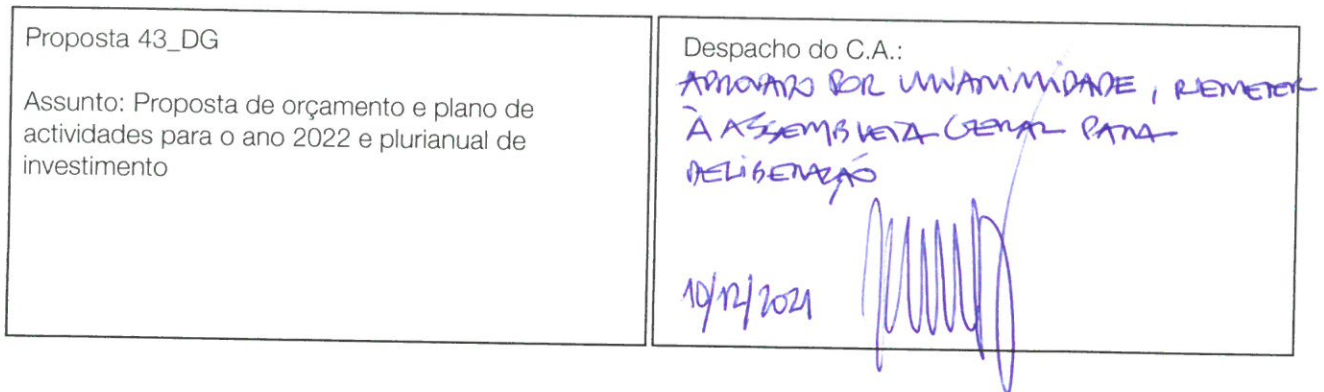 Proposta 43_DG
Assunto: Proposta de orçamento e plano de
actividades para o ano 2022 e plurianual de
investimento
Despacho do C.A.:
APROVADO POR UNANIMIDADE, REMETER
À ASSEMBLEIA GERAL PARA
DELIBERAÇÃO
10/12/2021